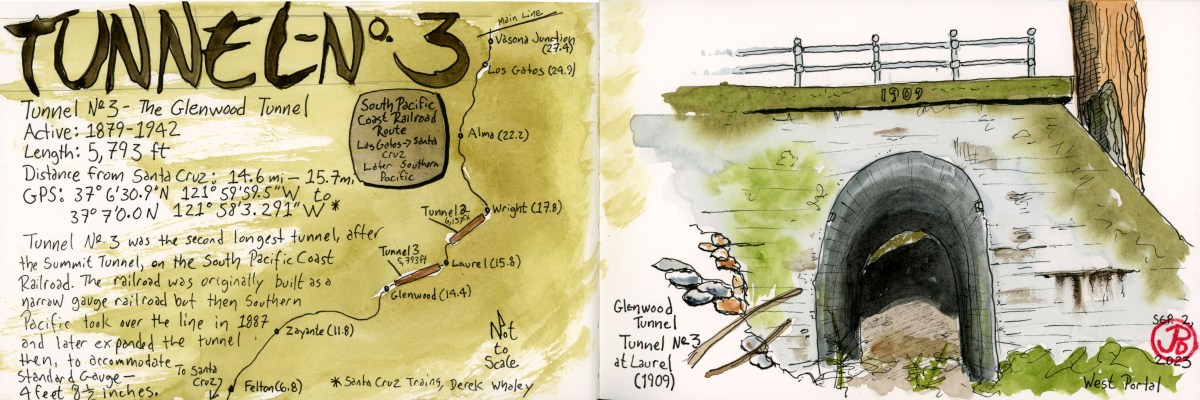 TUNNEL-Nº. 3
Tunnel Nº 3 - The Glenwood Tunnel
Active: 1879-1942
Length: 5,793 ft
Distance from Santa Cruz: 14.6 mi — 15.7 mi
GPS: 37° 6'30.9"N 121° 59'59.5"W to
37° 7'0.0N 121° 58'3.291"W *
Tunnel Nº 3 was the second longest tunnel, after
the Summit Tunnel, on the South Pacific Coast
Railroad. The railroad was originally built as a
narrow gauge railroad but then Southern
Pacific took over the line in 1887
and later expanded the tunnel
then, to accommodate
Standard Gauge—
4 feet 8½ inches.
South Pacific
Coast Railroad
Route
Los Gatos → Santa
Cruz
Later Southern
Pacific
Main Line
Vasona Junction
(27.4)
Los Gatos (24.9)
Alma (22.2)
Wright (17.8)
Tunnel 2
Tunnel 3
5,793ft
Laurel (15.8)
Glenwood (14.4)
Zayante (11.8)
To Santa
Cruz
Felton (6.8)
Not
to
Scale
* Santa Cruz Trains, Derek Whaley
1909
Glenwood
Tunnel
Tunnel Nº 3
at Laurel
(1909)
SEP. 2,
JPB
2023
West Portal